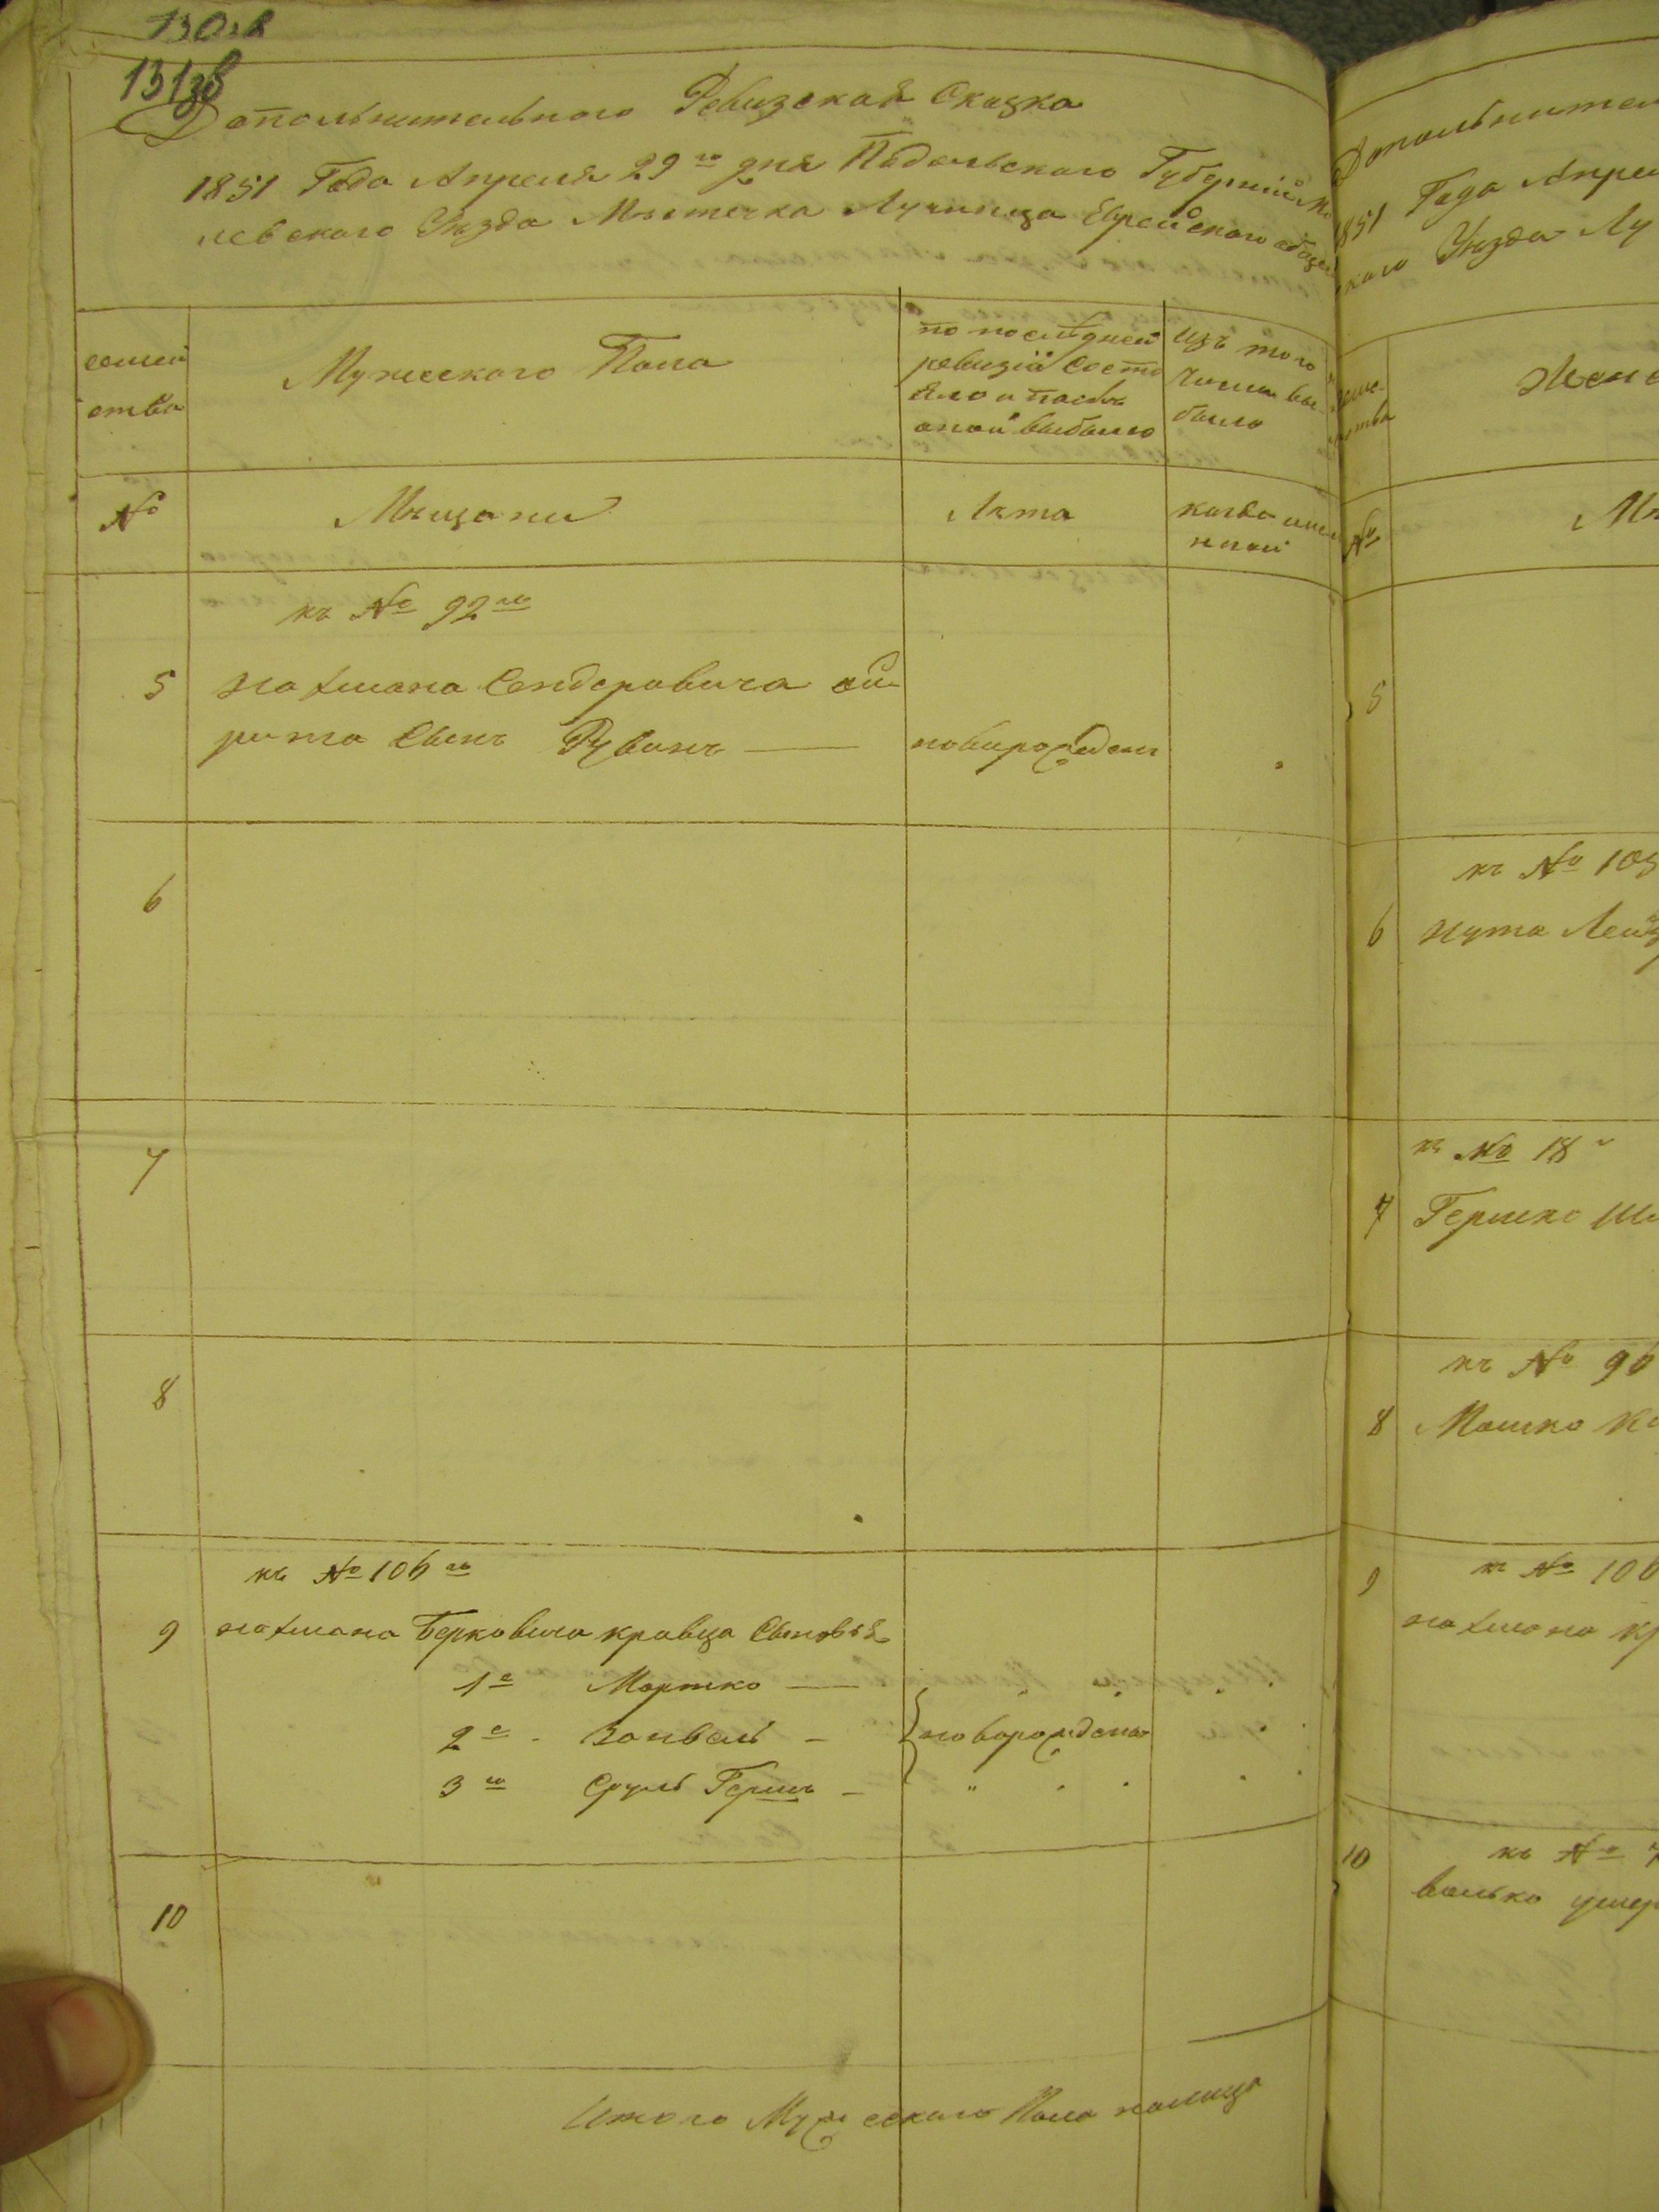 130зв
131зв
Дополнительного Ревизская Сказка
1851 Года Апреля 29го дня Подольского Губерний Мо
левского Уезда Мъстечка Лучинца Еврейского общес
семей
ства
Мужеского Пола
по последней
ревизій Состо
яло и после
оной выбыло
изъ того
числа вы
было
№
Мъщани
Лъта
когда имен
но
къ № 92му
5 Нахмана Сендеровича
сынъ Рувинъ — новорожден
6
7
8
къ № 106му
9 Нахмана Берковича кравца Сыновья
1е Мортко —
2е Занвель — новорождена
3го Сруль Гершъ —
10
Итого Мужеского Пола налицо
Дополнител
1851 Года Апрел
кого Уезда Лу
семе
ства
Женс
№
Мъ
5
къ № 105
6 Нута Лейз
къ № 18
7 Гершко Ш
къ № 96
8 Мошко К
къ № 106
9
Нахмана кр
къ №
10
Волько умер